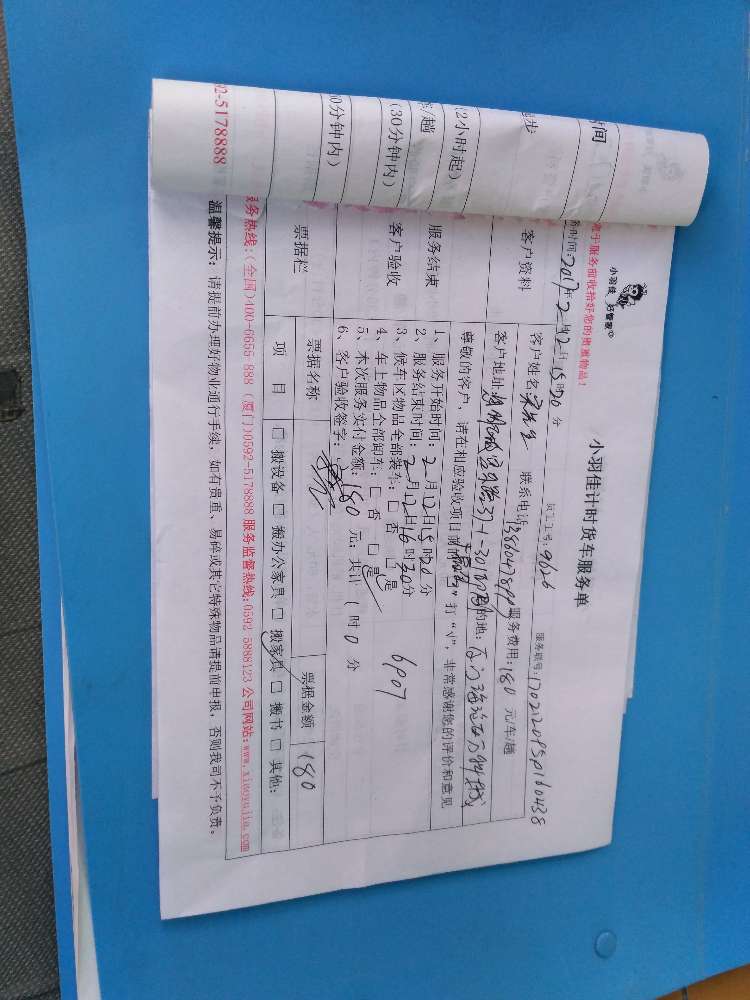 小羽佳 好管家
您于服务前收拾好您的贵重物品！
小羽佳计时货车服务单
时间：2017年2月12日15时20分
员工工号：9626
服务联号：170212095P160438
客户资料
客户姓名
联系电话
服务费用：180 元/车/趟
客户地址
的地：
尊敬的客户，请在相应验收项目前的“□”打“√”，非常感谢您的评价和意见
服务结束
客户验收
1、服务开始时间：2月12日15时20分
2、服务结束时间：2月12日16时20分
3、候车区物品全部装车：□ 否 □ 是
4、车上物品全部卸车：□ 否 □ 是
6907
5、本次服务实付金额：180 元，共计 1 时 0 分
6、客户验收签字：
票据栏
票据名称
票据金额
180
项 目
□ 搬设备 □ 搬办公家具 □ 搬家具 □ 搬书 □ 其他：
服务热线：(全国)400-6655-888 (厦门)0592-5178888 服务监督热线：0592-5888123 公司网站：www.xiaoyujia.com
温馨提示：请提前办理好物业通行手续，如有贵重、易碎或其它特殊物品请提前申报，否则我司不予负责。
间
步
(2小时起)
趟
(30分钟内)
0分钟内)
92-5178888